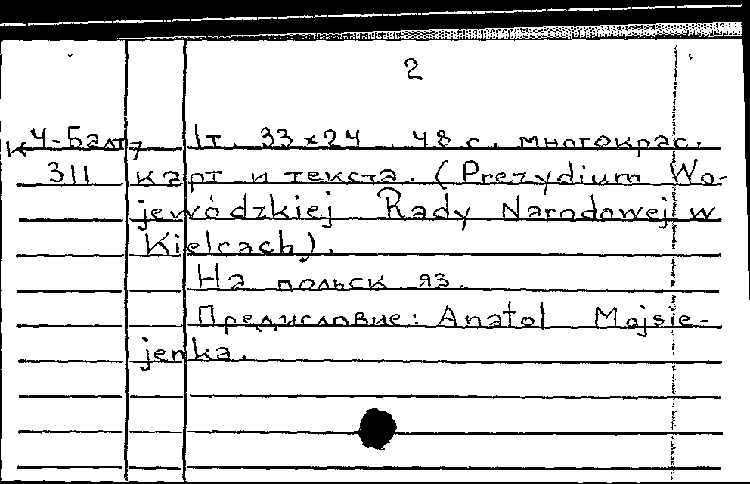 2
К 4-Балт 7 1 т. 33×24 48 с. многокрас.
311 карт и текста. (Prezydium Wo-
jewódzkiej Rady Narodowej w
Kielcach).
На польск яз.
Предисловие: Anatol Mojsie-
jenka.